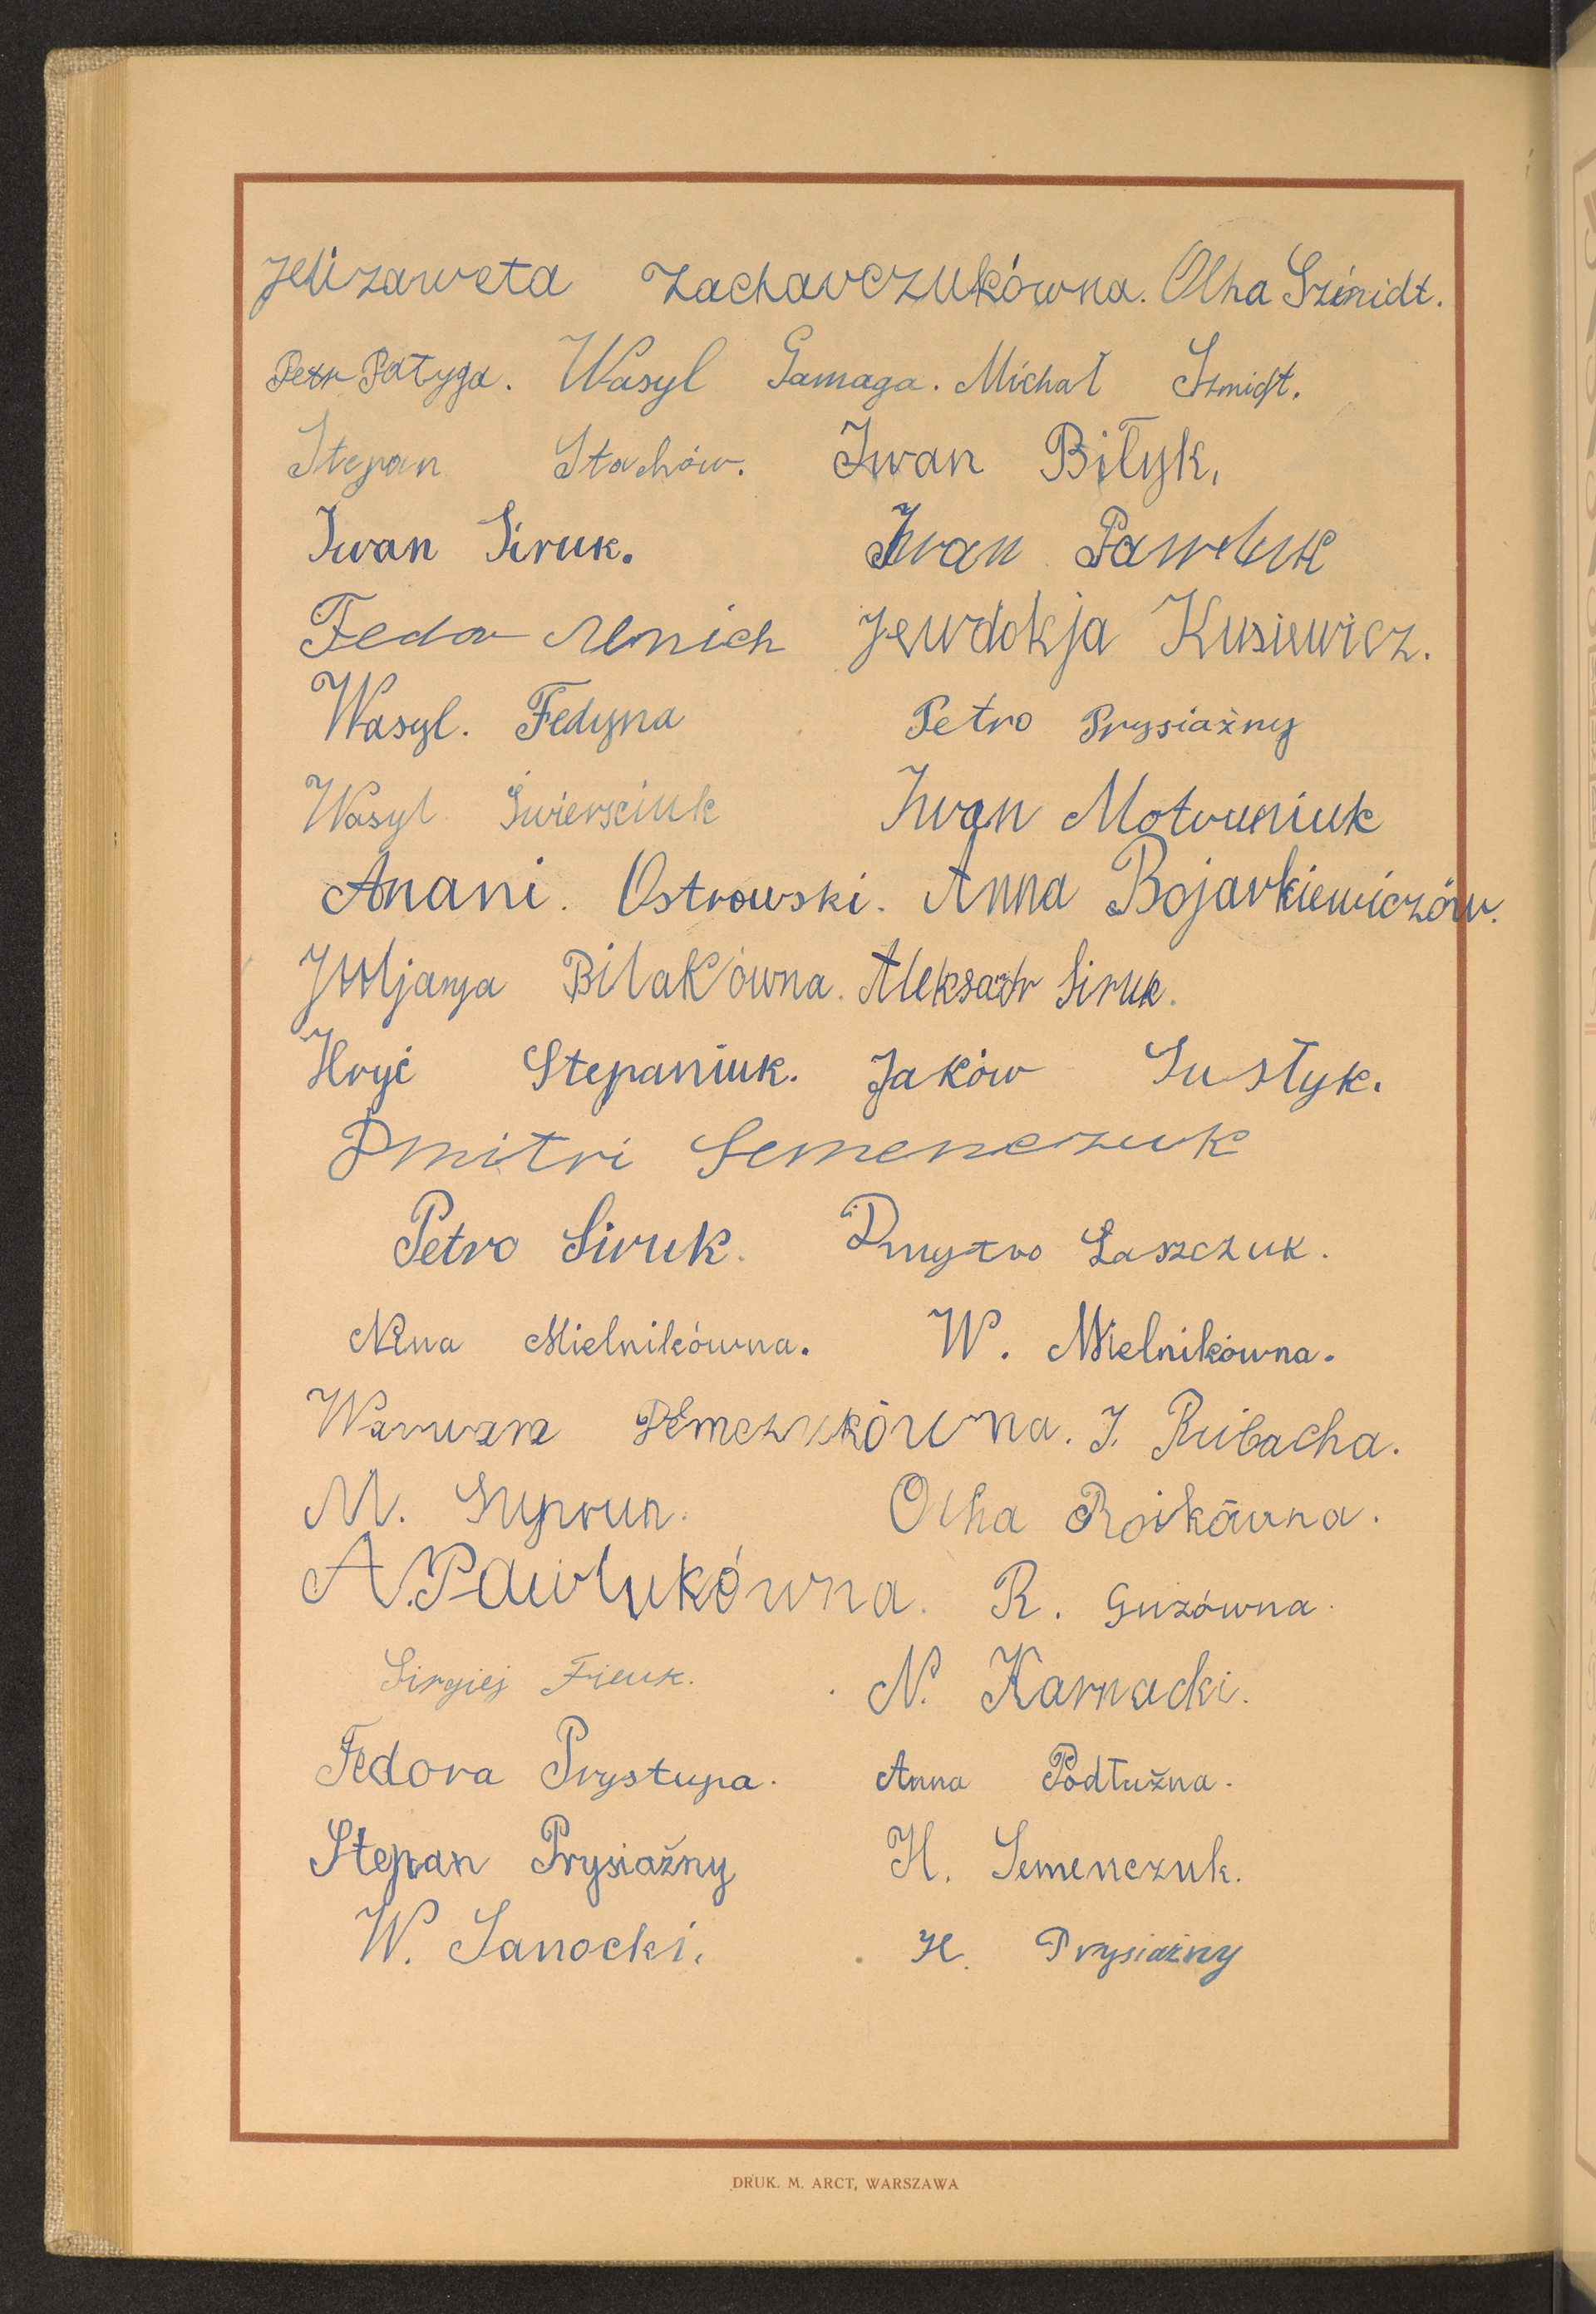 Jelizaweta Zacharczukówna. Olha Szmidt.
Petr Patyga. Wasyl Gamaga. Michał Szmidt.
Stepan Stachów. Iwan Biłyk,
Iwan Siruk. Iwan Pawluk
Fedor Mnich Jewdokja Kusiewicz.
Wasyl. Fedyna Petro Prysiažny
Wasyl Świersciuk Iwan Motruniuk
Anani. Ostrowski. Anna Bojarkiewiczów.
Juljanja Bilakówna. Aleksadr Siruk.
Hryć Stepaniuk. Jaków Susłyk.
Dmitri Semenczuk
Petro Siruk. Dmytro Łaszczuk.
Nina Mielnikówna. W. Mielnikówna.
Warwara Demczukówna. J. Rubacha.
M. Suprun. Olha Roikówna.
A. Pawlukówna. R. Guzówna.
Sirgiej N. Karnacki.
Fedora Prystupa. Anna Podłužna.
Stepan Prysiažny H. Semenczuk.
W. Sanocki. H. Prysiažny
DRUK. M. ARCT, WARSZAWA